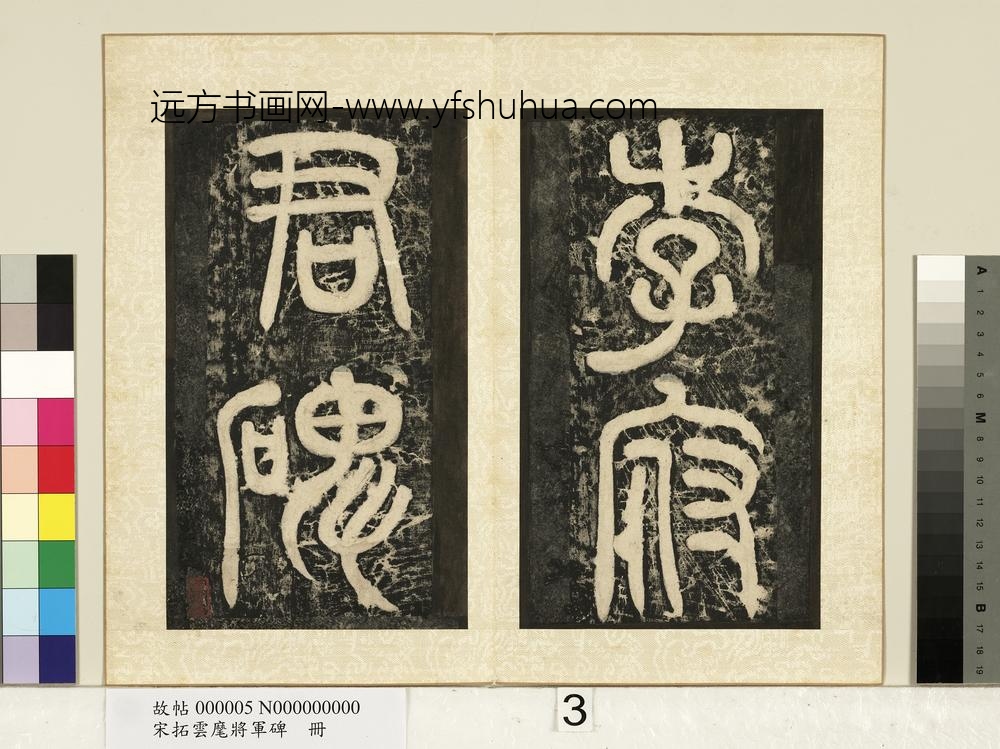 远方书画网-www.yfshuhua.com
李府
君碑
A 1 2 3 4 5 6 M 8 9 10 11 12 13 14 15 B 17 18 19
故帖 000005 N000000000
宋拓雲麾將軍碑　冊
3